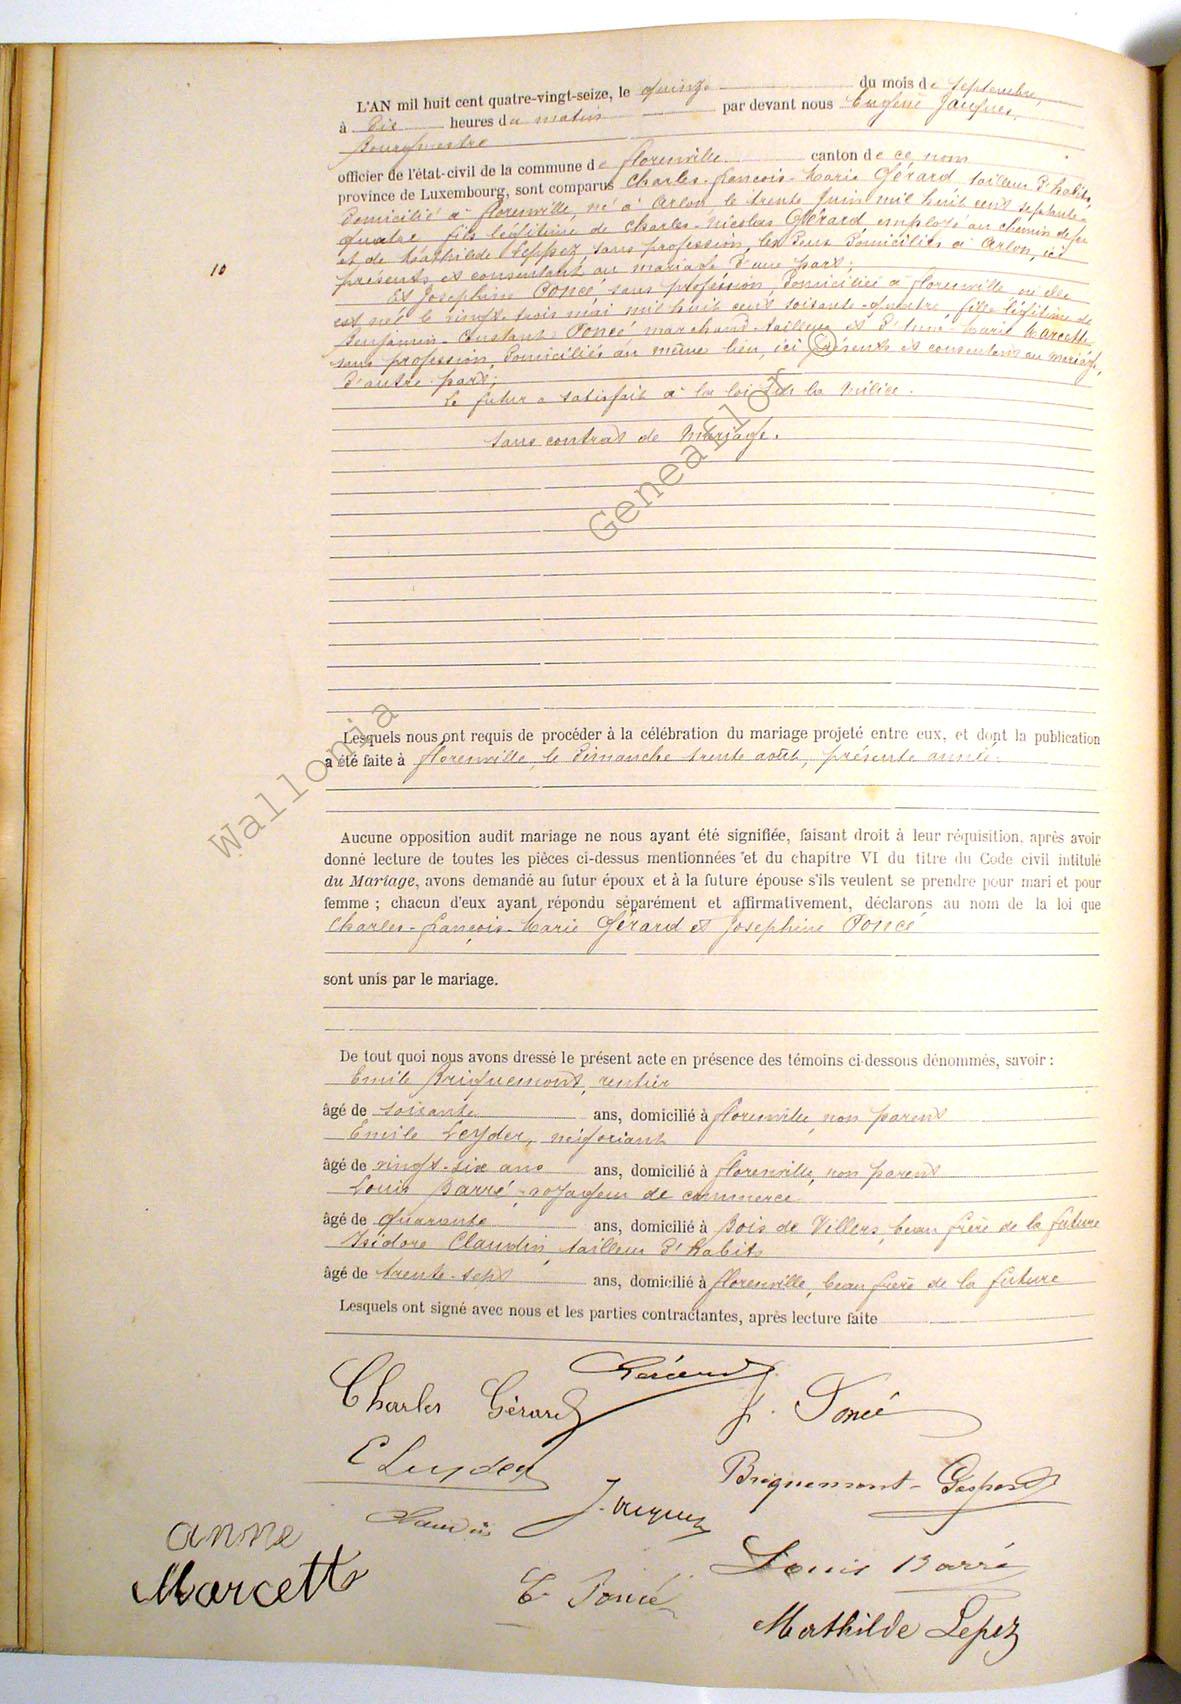 L'AN mil huit cent quatre-vingt-seize, le quinze du mois de septembre,
à dix heures du matin par devant nous Eugène Jacques,
Bourgmestre
officier de l'état-civil de la commune de Florenville canton de ce nom
province de Luxembourg, sont comparus Charles-François-Marie Gérard tailleur d'habits,
domicilié à Florenville, né à Arlon le trente Juin mil huit cent septante-
quatre, fils légitime de Charles-Nicolas Gérard employé au chemin de fer
et de Mathilde Leppez, sans profession, les deux domiciliés à Arlon, ici
10
présents et consentant au mariage d'une part;
Et Josephine Poncé sans profession, domiciliée à Florenville où elle
est née le vingt-trois mai mil huit cent soixante-quatre, fille légitime de
Benjamin-Constant Poncé marchand-tailleur et d'Anne-Marie Marcette
sans profession, domiciliés au même lieu, ici présents et consentans au mariage,
d'autre part;
Le futur a satisfait à la loi sur la Milice.
Sans contrat de Mariage.
Wallonia Geneaflor ©
Lesquels nous ont requis de procéder à la célébration du mariage projeté entre eux, et dont la publication
a été faite à Florenville, le Dimanche trente août, présente année.
Aucune opposition audit mariage ne nous ayant été signifiée, faisant droit à leur réquisition, après avoir
donné lecture de toutes les pièces ci-dessus mentionnées et du chapitre VI du titre du Code civil intitulé
du Mariage, avons demandé au futur époux et à la future épouse s'ils veulent se prendre pour mari et pour
femme ; chacun d'eux ayant répondu séparément et affirmativement, déclarons au nom de la loi que
Charles-François-Marie Gérard et Josephine Poncé
sont unis par le mariage.
De tout quoi nous avons dressé le présent acte en présence des témoins ci-dessous dénommés, savoir :
Emile Briquemont, rentier
âgé de soixante ans, domicilié à Florenville, non parent
Emile Leyder, négociant
âgé de vingt-six ans ans, domicilié à Florenville, non parent
Louis Barré, voyageur de commerce
âgé de quarante ans, domicilié à Bois de Villers, beau frère de la future
Isidore Claudin, tailleur d'habits
âgé de trente-sept ans, domicilié à Florenville, beau frère de la future
Lesquels ont signé avec nous et les parties contractantes, après lecture faite
Gérard
Charles Gérard J. Poncé
E Leyder
Briquemont-Gaspard
Claudin J. Jacques
anne
Marcette
Louis Barré
C. Poncé
Mathilde Lepez